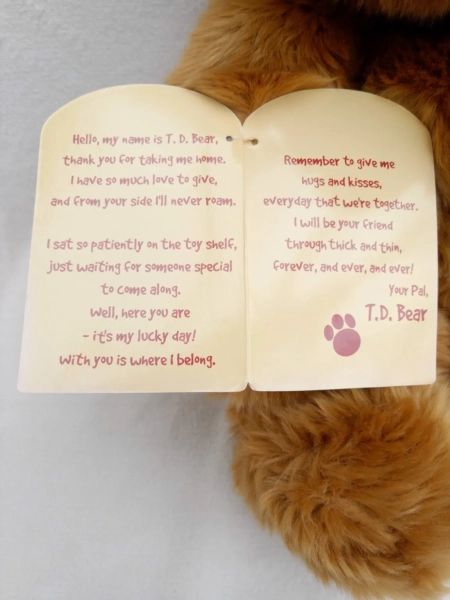 Hello, my name is T. D. Bear,
thank you for taking me home.
I have so much love to give,
and from your side I'll never roam.
I sat so patiently on the toy shelf,
just waiting for someone special
to come along.
Well, here you are
- it's my lucky day!
With you is where I belong.
Remember to give me
hugs and kisses,
everyday that we're together.
I will be your friend
through thick and thin,
forever, and ever, and ever!
Your Pal,
T.D. Bear